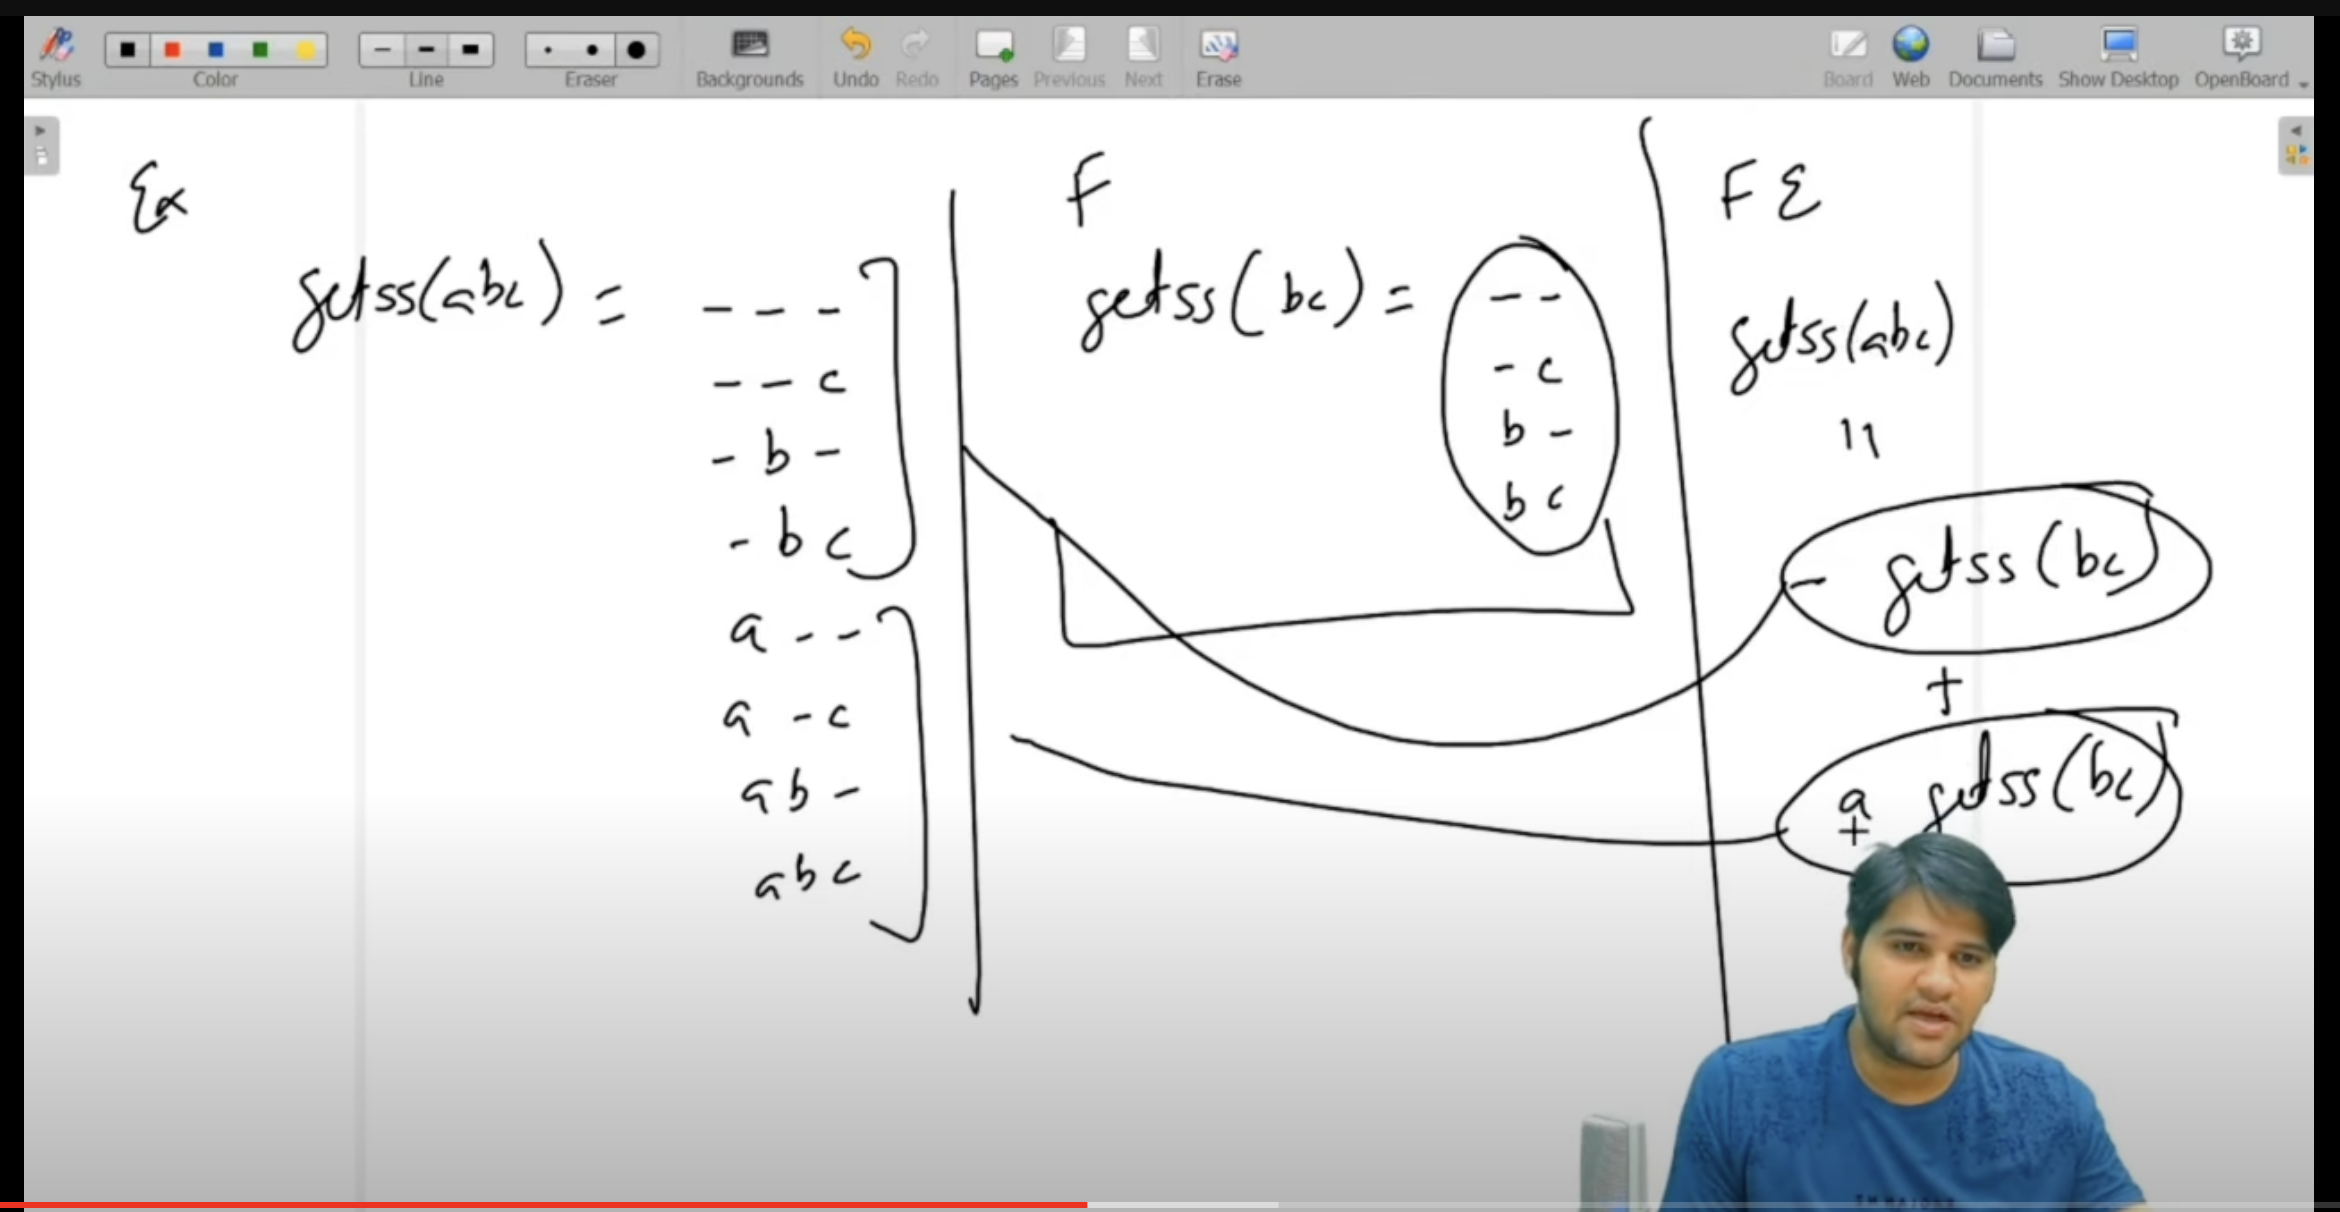 Stylus Color Line Eraser Backgrounds Undo Redo Pages Previous Next Erase Board Web Documents Show Desktop OpenBoard
Ex
getss(abc) = - - -
- - c
- b -
- b c
a - -
a - c
a b -
a b c
F
getss(bc) = - -
- c
b -
b c
F E
getss(abc)
=
- getss(bc)
+
a + getss(bc)